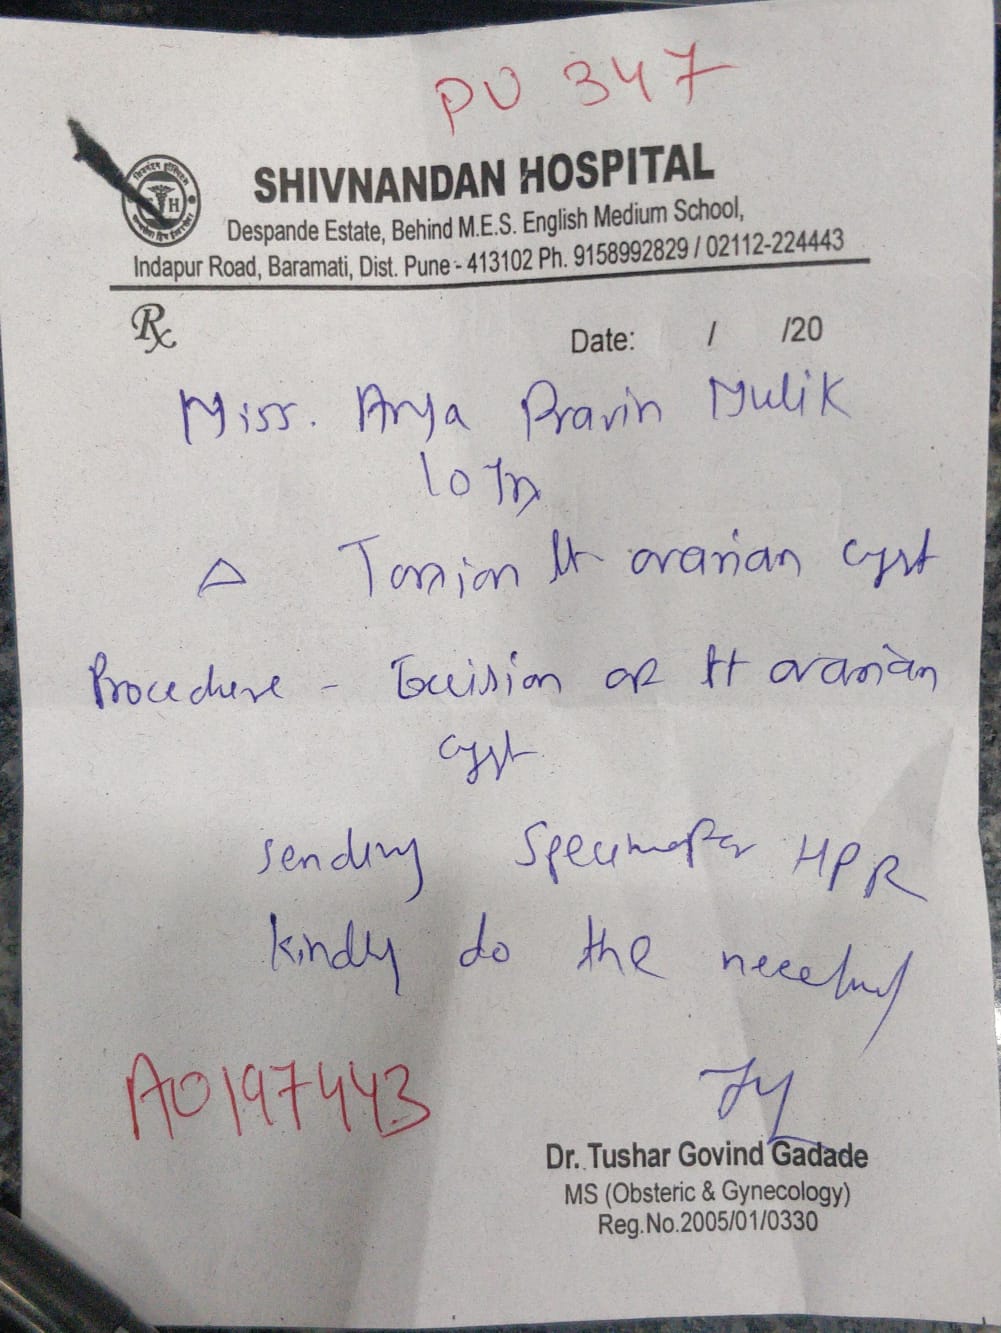 PU 347
SHIVNANDAN HOSPITAL
Despande Estate, Behind M.E.S. English Medium School,
Indapur Road, Baramati, Dist. Pune - 413102 Ph. 9158992829 / 02112-224443
Rx
Date: / /20
Miss. Arya Pravin Mulik
10
Δ Torsion lt ovarian cyst
Procedure - Excision of lt ovarian
cyst
sending Specimen for HPR
kindly do the needful
A0197443
Dr. Tushar Govind Gadade
MS (Obsteric & Gynecology)
Reg.No.2005/01/0330